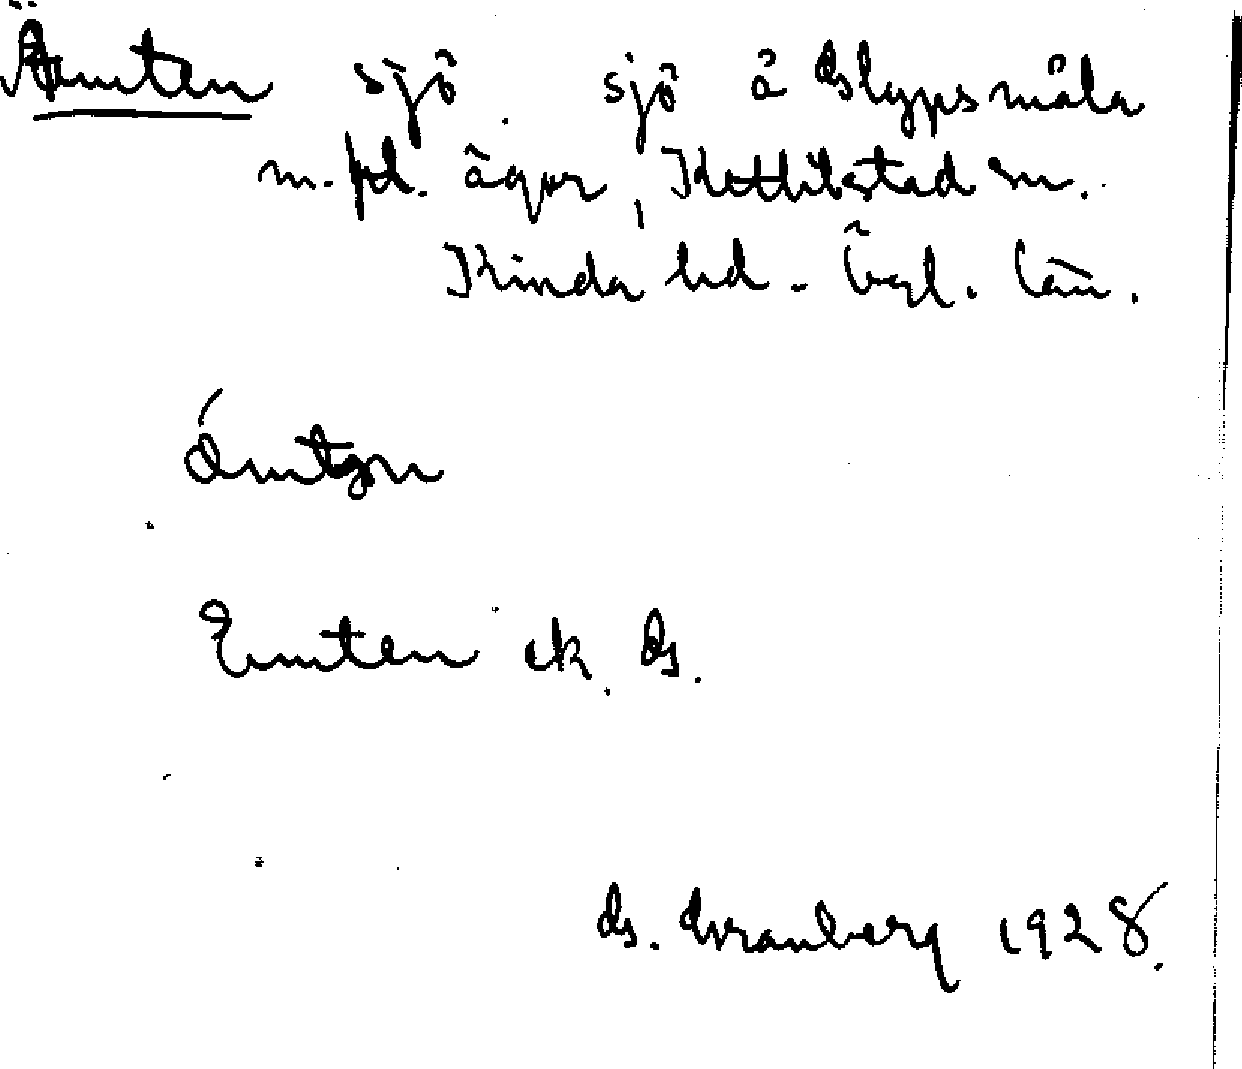 Ämten sjö sjö å Slypsmåla
m. fl. ägor, Kettilstad sn.
Kinda hd. Ögl. län.
ámtən
Emten ek. G.
G. Granberg 1928.